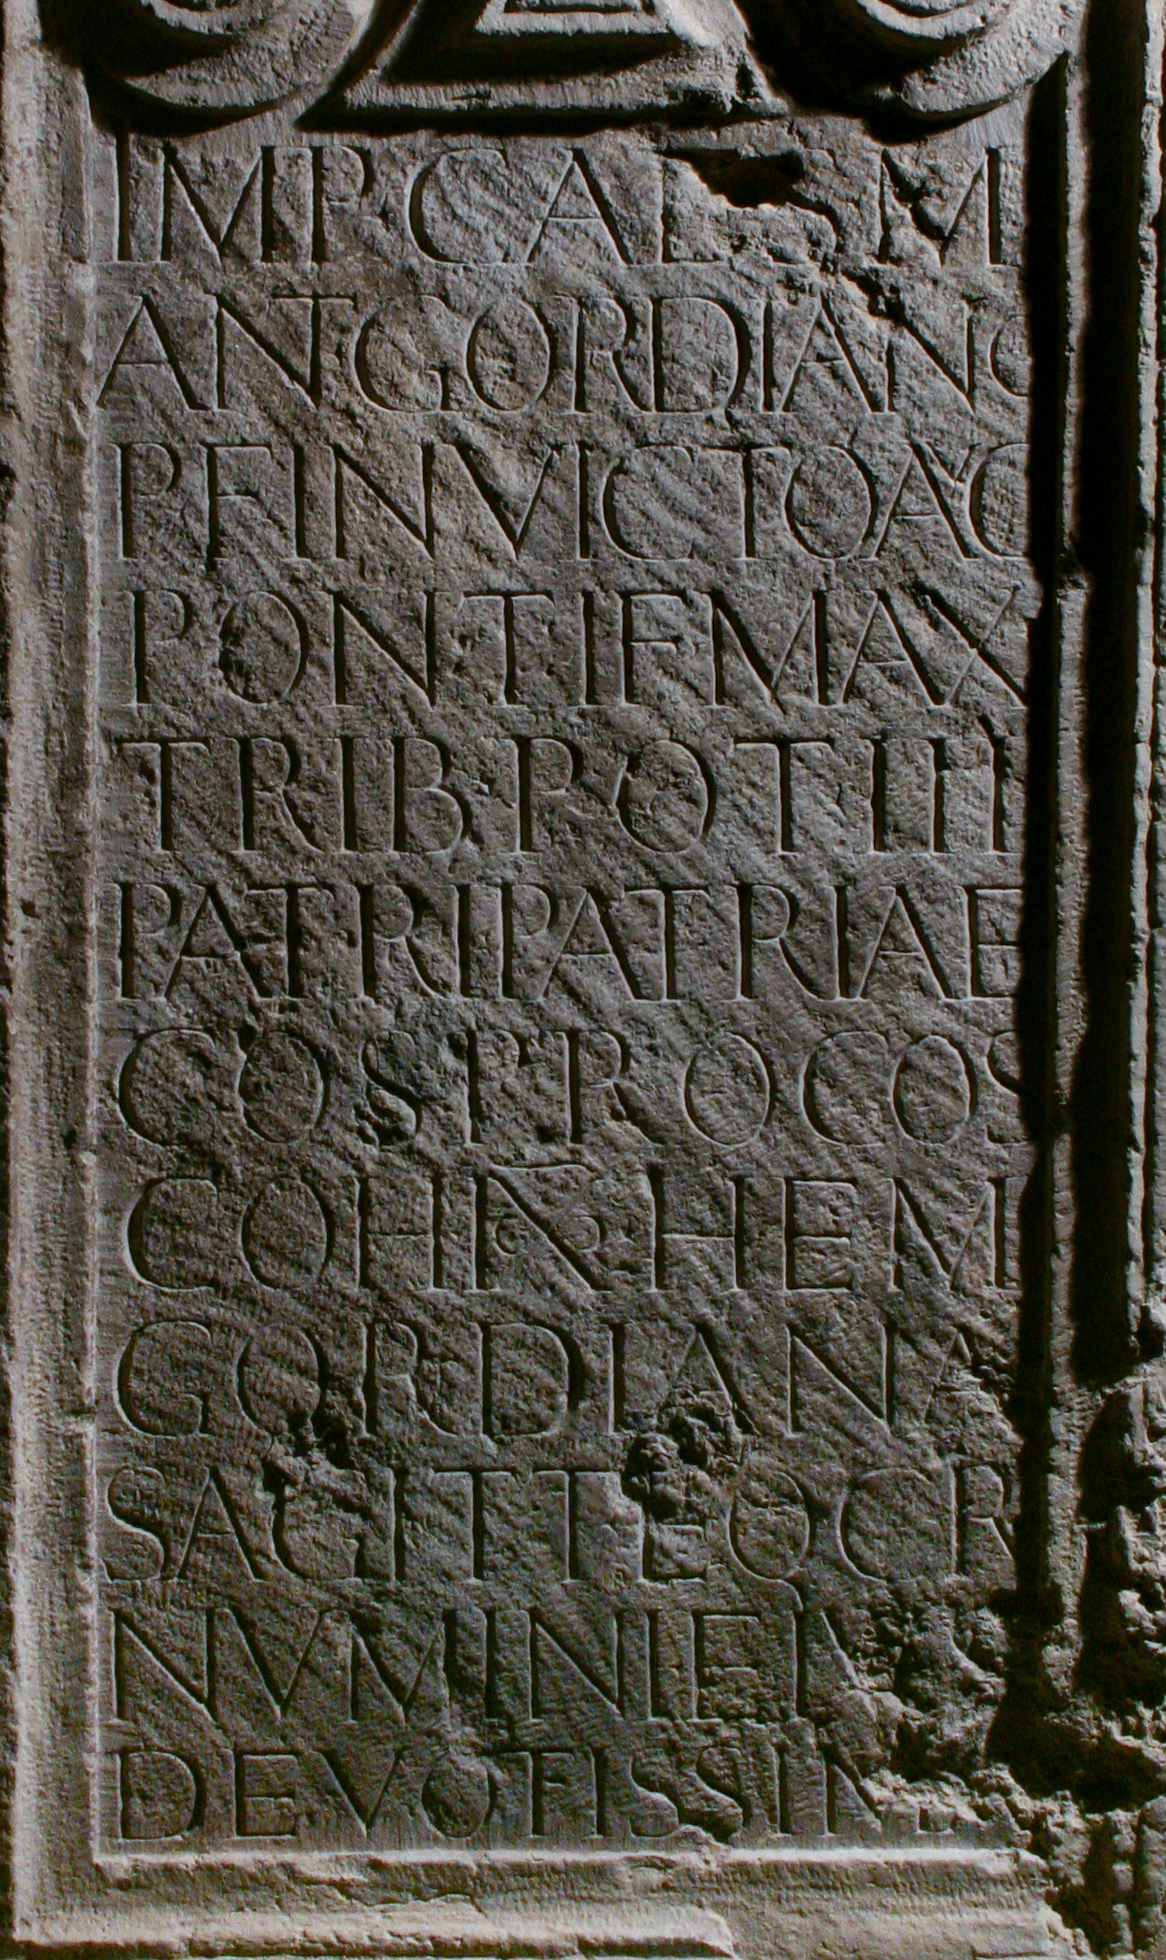 IMP CAES M
ANT GORDIANO
P F INVICTO AVG
PONTIF MAX
TRIB POT III
PATRI PATRIAE
COS PROCOS
COH I HEM
GORDIANA
SAGITT EQ C R
NVMINI EIVS
DEVOTISSIMA